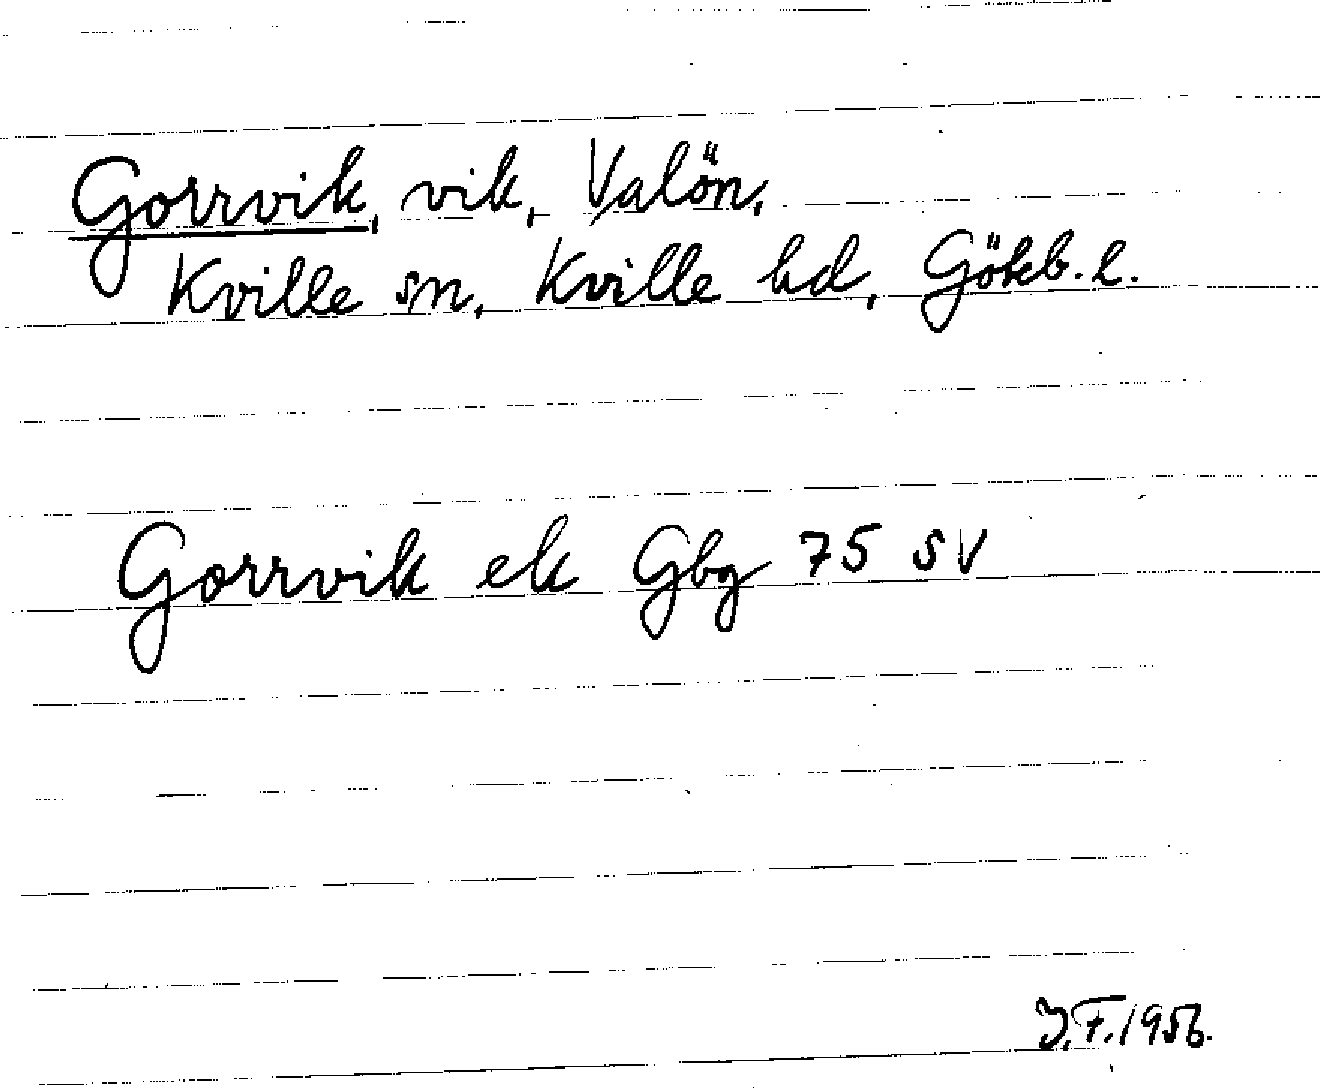 Gorrvik, vik, Valön,
Kville sn, Kville hd, Göteb. l.
Gorrvik ek Gbg 75 SV
J.F. 1956.